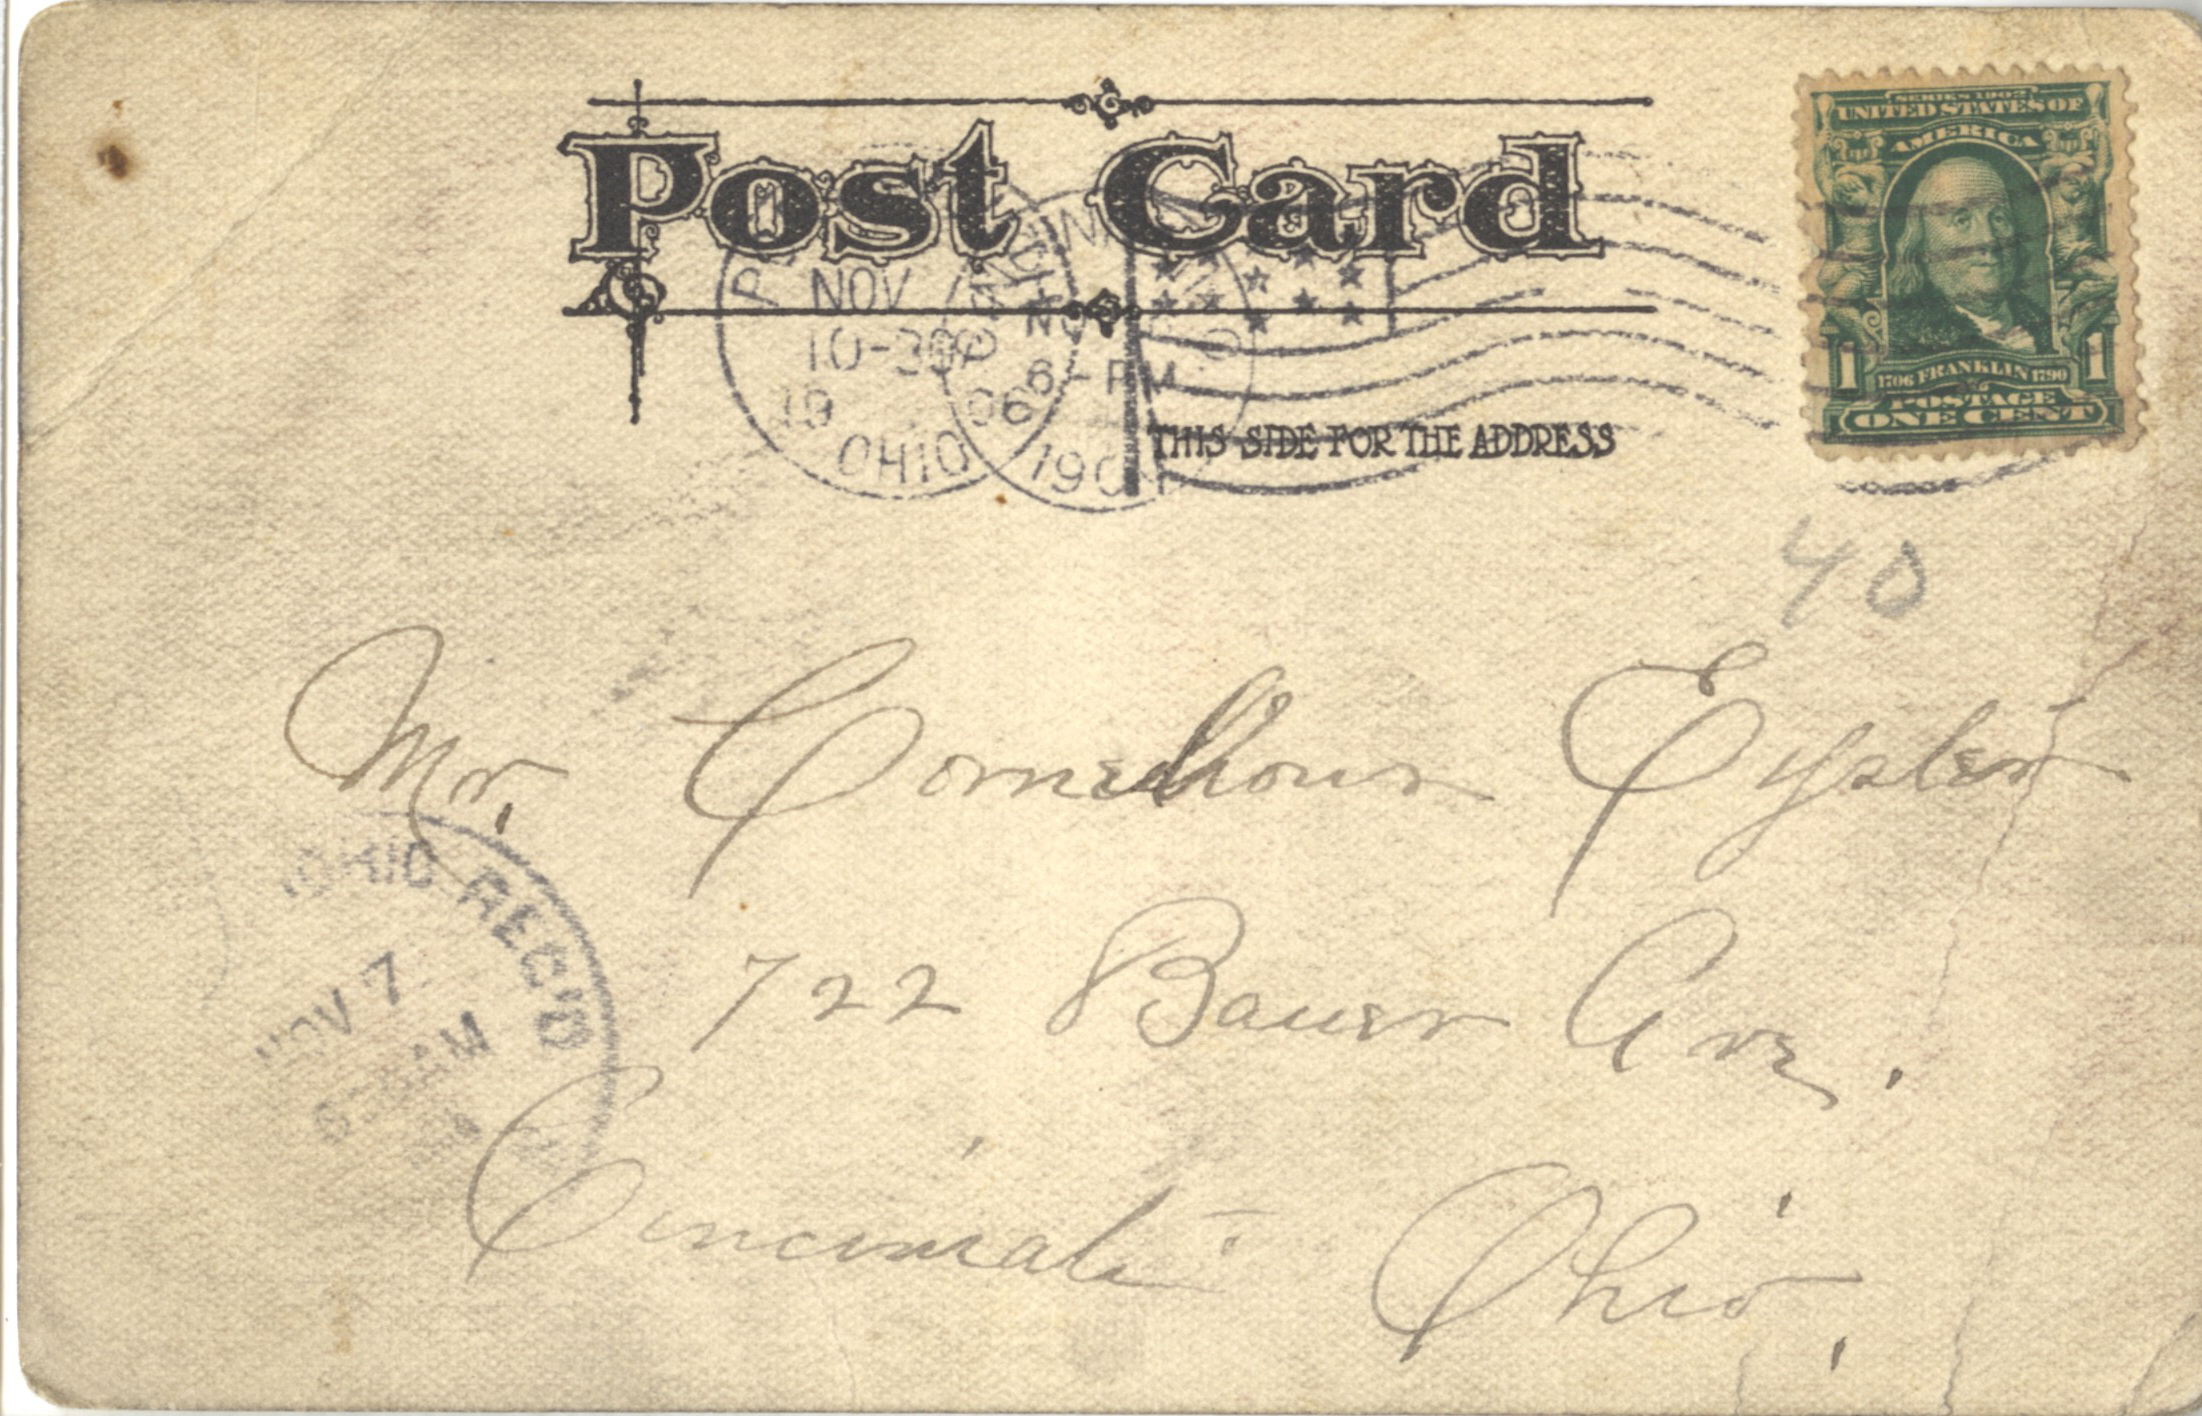 Post Card
THIS SIDE FOR THE ADDRESS
SERIES 1902
UNITED STATES OF
AMERICA
1 1
1706 FRANKLIN 1790
POSTAGE
ONE CENT
NOV
10-30
19 06
OHIO
6-PM
190
40
Mr. Cornelious Eyster
OHIO REC'D
NOV 7
AM
722 Bauer Ave.
Cincinati - Ohio.